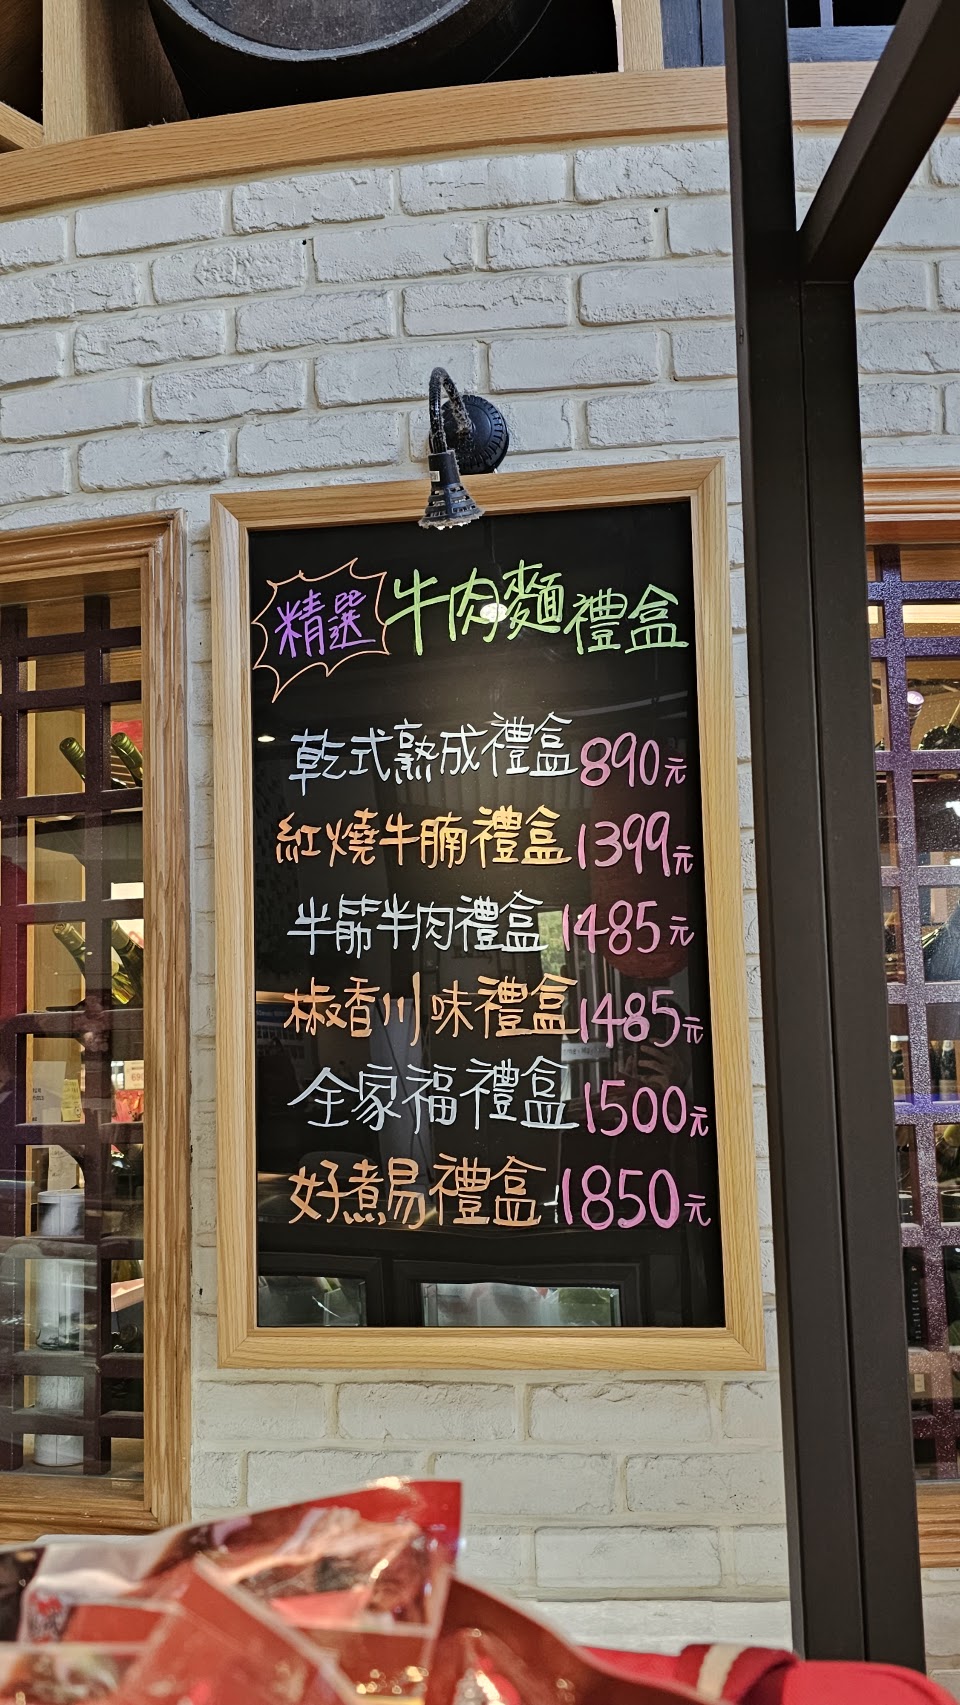 精選 牛肉麵禮盒
乾式熟成禮盒 890元
紅燒牛腩禮盒 1399元
半筋半肉禮盒 1485元
椒香川味禮盒 1485元
全家福禮盒 1500元
好煮易禮盒 1850元